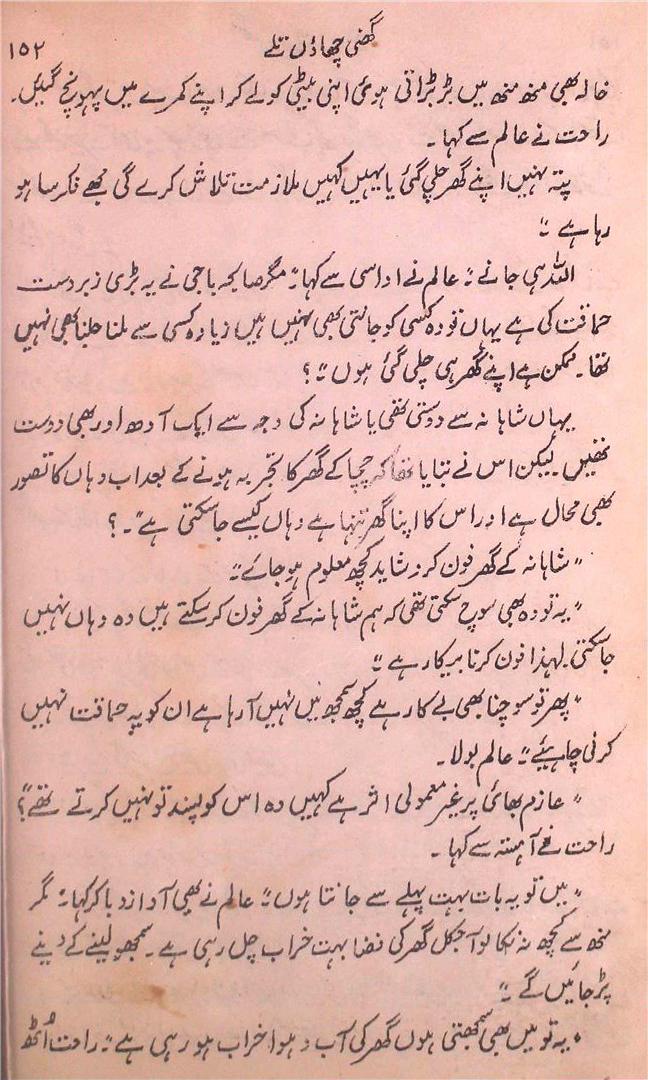 ۱۵۲
گھنی چھاؤں تلے
خالہ بھی منھ منھ میں بڑبڑاتی ہوئی اپنی بیٹی کو لے کر اپنے کمرے میں پہونچ گئیں۔
راحت نے عالم سے کہا۔
پتہ نہیں اپنے گھر چلی گئی یا یہیں کہیں ملازمت تلاش کرے گی مجھے فکر سا ہو
رہا ہے ؛؛
اللہ ہی جانے ؛؛ عالم نے اداسی سے کہا ؛؛ مگر صالحہ باجی نے یہ بڑی زبردست
حماقت کی ہے یہاں تو وہ کسی کو جانتی بھی نہیں ہیں زیادہ کسی سے ملنا جلنا بھی نہیں
تھا۔ ممکن ہے اپنے گھر ہی چلی گئی ہوں ؛؛ ؟
یہاں شاہانہ سے دوستی تھی یا شاہانہ کی وجہ سے ایک آدھ اور بھی دوست
تھیں لیکن اس نے بتایا تھا کہ چچا کے گھر کا تجربہ ہونے کے بعد اب وہاں کا تصور
بھی محال ہے اور اس کا اپنا گھر تنہا ہے وہاں کیسے جا سکتی ہے ؛؛۔ ؟
؛؛ شاہانہ کے گھر فون کرو شاید کچھ معلوم ہو جائے ؛؛
؛؛ یہ تو وہ بھی سوچ سکتی تھی کہ ہم شاہانہ کے گھر فون کر سکتے ہیں وہ وہاں نہیں
جا سکتی۔ لہٰذا فون کرنا بیکار ہے ؛؛
؛؛ پھر تو سوچنا بھی بے کار ہے کچھ سمجھ میں نہیں آ رہا ہے ان کو یہ حماقت نہیں
کرنی چاہیئے ؛؛ عالم بولا۔
؛؛ عازم بھائی پر غیر معمولی اثر ہے کہیں وہ اس کو پسند تو نہیں کرتے تھے ؛؛؟
راحت نے آہستہ سے کہا۔
؛؛ میں تو یہ بات بہت پہلے سے جانتا ہوں ؛؛ عالم نے بھی آواز دبا کر کہا ؛؛ مگر
منھ سے کچھ نہ نکالو آجکل گھر کی فضا بہت خراب چل رہی ہے۔ سمجھو لینے کے دینے
پڑ جائیں گے ؛؛
؛؛ یہ تو میں بھی سمجھتی ہوں گھر کی آب و ہوا خراب ہو رہی ہے ؛؛ راحت اُٹھ